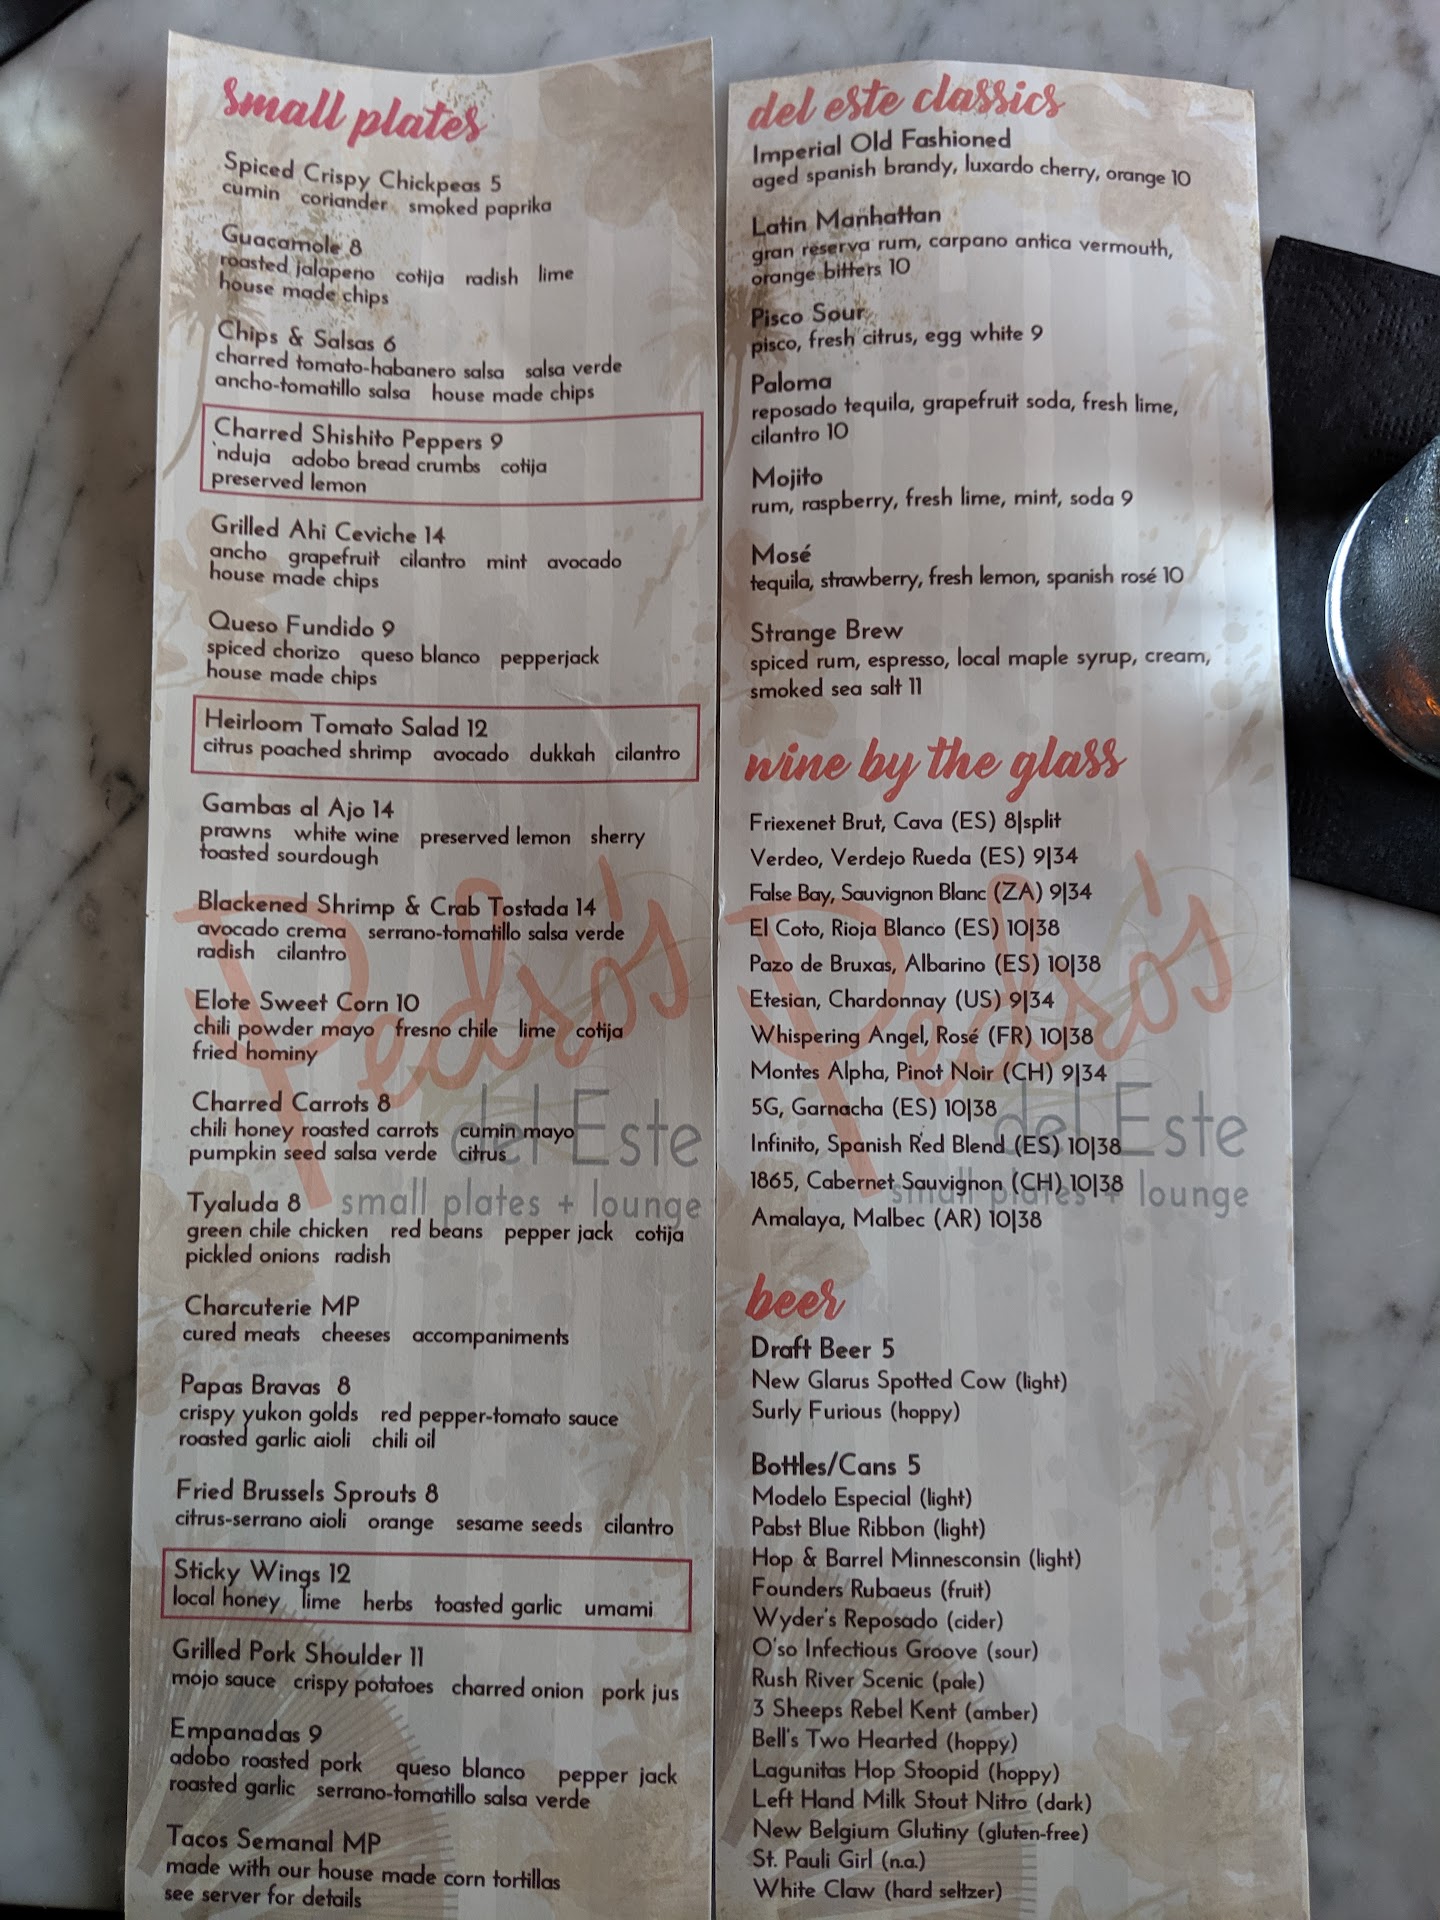 small plates
Spiced Crispy Chickpeas 5
cumin coriander smoked paprika
Guacamole 8
roasted jalapeno cotija radish lime
house made chips
Chips & Salsas 6
charred tomato-habanero salsa salsa verde
ancho-tomatillo salsa house made chips
Charred Shishito Peppers 9
'nduja adobo bread crumbs cotija
preserved lemon
Grilled Ahi Ceviche 14
ancho grapefruit cilantro mint avocado
house made chips
Queso Fundido 9
spiced chorizo queso blanco pepperjack
house made chips
Heirloom Tomato Salad 12
citrus poached shrimp avocado dukkah cilantro
Gambas al Ajo 14
prawns white wine preserved lemon sherry
toasted sourdough
Blackened Shrimp & Crab Tostada 14
avocado crema serrano-tomatillo salsa verde
radish cilantro
Elote Sweet Corn 10
chili powder mayo fresno chile lime cotija
fried hominy
Charred Carrots 8
chili honey roasted carrots cumin mayo
pumpkin seed salsa verde citrus
Tyaluda 8
green chile chicken red beans pepper jack cotija
pickled onions radish
Charcuterie MP
cured meats cheeses accompaniments
Papas Bravas 8
crispy yukon golds red pepper-tomato sauce
roasted garlic aioli chili oil
Fried Brussels Sprouts 8
citrus-serrano aioli orange sesame seeds cilantro
Sticky Wings 12
local honey lime herbs toasted garlic umami
Grilled Pork Shoulder 11
mojo sauce crispy potatoes charred onion pork jus
Empanadas 9
adobo roasted pork queso blanco pepper jack
roasted garlic serrano-tomatillo salsa verde
Tacos Semanal MP
made with our house made corn tortillas
see server for details
Pedro's
del Este
small plates + lounge
del este classics
Imperial Old Fashioned
aged spanish brandy, luxardo cherry, orange 10
Latin Manhattan
gran reserva rum, carpano antica vermouth,
orange bitters 10
Pisco Sour
pisco, fresh citrus, egg white 9
Paloma
reposado tequila, grapefruit soda, fresh lime,
cilantro 10
Mojito
rum, raspberry, fresh lime, mint, soda 9
Mosé
tequila, strawberry, fresh lemon, spanish rosé 10
Strange Brew
spiced rum, espresso, local maple syrup, cream,
smoked sea salt 11
wine by the glass
Friexenet Brut, Cava (ES) 8|split
Verdeo, Verdejo Rueda (ES) 9|34
False Bay, Sauvignon Blanc (ZA) 9|34
El Coto, Rioja Blanco (ES) 10|38
Pazo de Bruxas, Albarino (ES) 10|38
Etesian, Chardonnay (US) 9|34
Whispering Angel, Rosé (FR) 10|38
Montes Alpha, Pinot Noir (CH) 9|34
5G, Garnacha (ES) 10|38
Infinito, Spanish Red Blend (ES) 10|38
1865, Cabernet Sauvignon (CH) 10|38
Amalaya, Malbec (AR) 10|38
beer
Draft Beer 5
New Glarus Spotted Cow (light)
Surly Furious (hoppy)
Bottles/Cans 5
Modelo Especial (light)
Pabst Blue Ribbon (light)
Hop & Barrel Minnesconsin (light)
Founders Rubaeus (fruit)
Wyder's Reposado (cider)
O'so Infectious Groove (sour)
Rush River Scenic (pale)
3 Sheeps Rebel Kent (amber)
Bell's Two Hearted (hoppy)
Lagunitas Hop Stoopid (hoppy)
Left Hand Milk Stout Nitro (dark)
New Belgium Glutiny (gluten-free)
St. Pauli Girl (n.a.)
White Claw (hard seltzer)
Pedro's
del Este
small plates + lounge